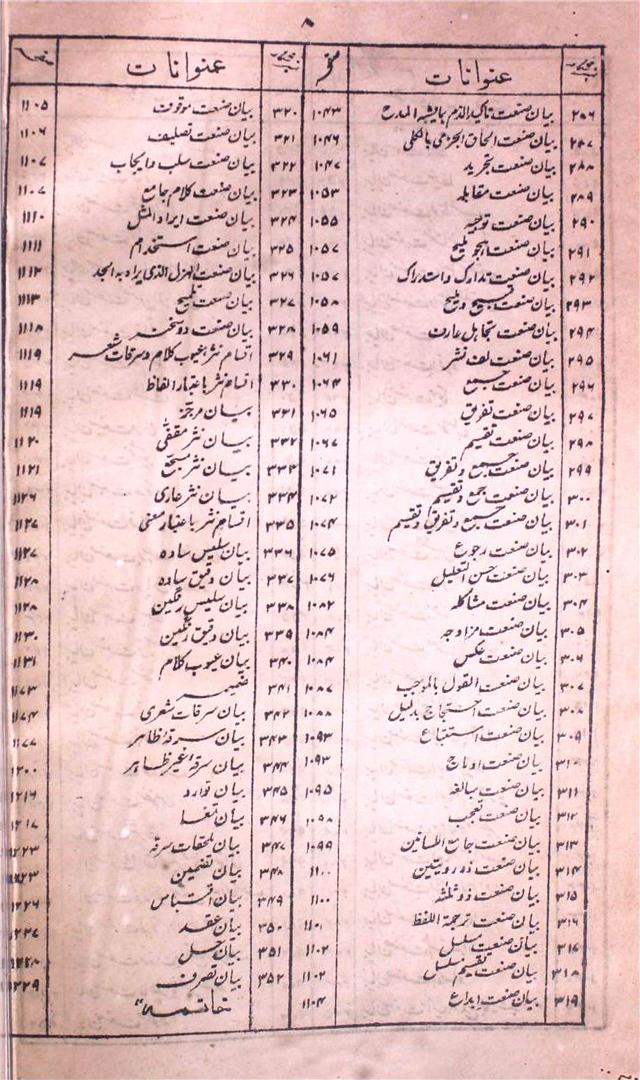 ۸
نمبر شمار عنوانات صفحہ
۲۸۶ بیان صنعت تاکید الذم بمایشبہ المدح ۱۰۴۳
۲۸۷ بیان صنعت الحاق الجزئی بالکلی ۱۰۴۶
۲۸۸ بیان صنعت تجرید ۱۰۴۷
۲۸۹ بیان صنعت مقابلہ ۱۰۵۳
۲۹۰ بیان صنعت توجیہ ۱۰۵۵
۲۹۱ بیان صنعت ہجو ملیح ۱۰۵۷
۲۹۲ بیان صنعت تدارک واستدراک ۱۰۵۷
۲۹۳ بیان صنعت قبیح و ملیح ۱۰۵۸
۲۹۴ بیان صنعت تجاہل عارف ۱۰۵۹
۲۹۵ بیان صنعت لف نشر ۱۰۶۱
۲۹۶ بیان صنعت جمیع ۱۰۶۴
۲۹۷ بیان صنعت تفریق ۱۰۶۵
۲۹۸ بیان صنعت تقسیم ۱۰۶۷
۲۹۹ بیان صنعت جمیع و تفریق ۱۰۷۱
۳۰۰ بیان صنعت جمع و تقسیم ۱۰۷۲
۳۰۱ بیان صنعت جمیع و تفریق و تقسیم ۱۰۷۴
۳۰۲ بیان صنعت رجوع ۱۰۷۵
۳۰۳ بیان صنعت حسن التعلیل ۱۰۷۶
۳۰۴ بیان صنعت مشاکلہ ۱۰۸۲
۳۰۵ بیان صنعت مزاوجہ ۱۰۸۴
۳۰۶ بیان صنعت عکس ۱۰۸۴
۳۰۷ بیان صنعت القول بالموجب ۱۰۸۷
۳۰۸ بیان صنعت احتجاج بدلیل ۱۰۸۸
۳۰۹ بیان صنعت استتباع ۱۰۹۳
۳۱۰ بیان صنعت ادماج ۱۰۹۳
۳۱۱ بیان صنعت مبالغہ ۱۰۹۵
۳۱۲ بیان صنعت تعجب ۱۰۹۸
۳۱۳ بیان صنعت جامع اللسانین ۱۰۹۹
۳۱۴ بیان صنعت ذو رویتین ۱۱۰۰
۳۱۵ بیان صنعت ذو ثلثہ ۱۱۰۰
۳۱۶ بیان صنعت ترجمۃ اللفظ ۱۱۰۱
۳۱۷ بیان صنعت مسلسل ۱۱۰۲
۳۱۸ بیان صنعت تقسیم مسلسل ۱۱۰۲
۳۱۹ بیان صنعت ابداع ۱۱۰۴
نمبر شمار عنوانات صفحہ
۳۲۰ بیان صنعت موقوف ۱۱۰۵
۳۲۱ بیان صنعت تصلیف ۱۱۰۶
۳۲۲ بیان صنعت سلب و ایجاب ۱۱۰۷
۳۲۳ بیان صنعت کلام جامع ۱۱۰۷
۳۲۴ بیان صنعت ایراد المثل ۱۱۱۰
۳۲۵ بیان صنعت استخدام ۱۱۱۱
۳۲۶ بیان صنعت الہزل الذی یراد بہ الجد ۱۱۱۲
۳۲۷ بیان صنعت تلمیح ۱۱۱۳
۳۲۸ بیان صنعت دو سخنہ ۱۱۱۸
۳۲۹ اقسام نثر، عیوب کلام و سرقات شعر ۱۱۱۹
۳۳۰ اقسام نثر باعتبار الفاظ ۱۱۱۹
۳۳۱ بیان مرجز ۱۱۱۹
۳۳۲ بیان نثر مقفٰی ۱۱۲۰
۳۳۳ بیان نثر مسجع ۱۱۲۱
۳۳۴ بیان نثر عاری ۱۱۲۶
۳۳۵ اقسام نثر باعتبار معنی ۱۱۲۷
۳۳۶ بیان سلیس سادہ ۱۱۲۷
۳۳۷ بیان دقیق سادہ ۱۱۲۸
۳۳۸ بیان سلیس رنگین ۱۱۲۸
۳۳۹ بیان دقیق رنگین ۱۱۳۰
۳۴۰ بیان عیوب کلام ۱۱۳۱
۳۴۱ ضمیمہ ۱۱۷۳
۳۴۲ بیان سرقات شعری ۱۱۷۴
۳۴۳ بیان سرقۂ ظاہر ۱۱۷۷
۳۴۴ بیان سرقۂ غیر ظاہر ۱۲۰۰
۳۴۵ بیان توارد ۱۲۱۶
۳۴۶ بیان تغا ۱۲۱۷
۳۴۷ بیان ملحقات سرقہ ۱۲۲۳
۳۴۸ بیان تضمین ۱۲۲۳
۳۴۹ بیان اقتباس ۱۲۲۶
۳۵۰ بیان عقد ۱۲۳۷
۳۵۱ بیان حل
۳۵۲ بیان تصرف
خاتمہ